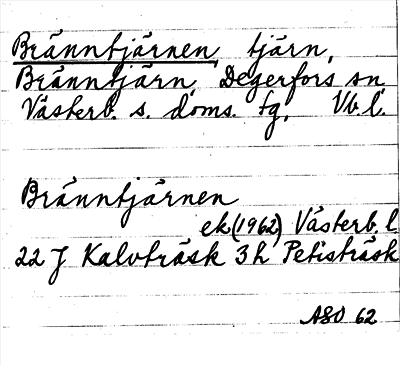 Bränntjärnen, tjärn,
Bränntjärn, Degerfors sn,
Västerb. s. doms. tg, Vb. l.
Bränntjärnen
ek (1962) Västerb. l
22 J Kalvträsk 3 h Petisträsk
ASO 62